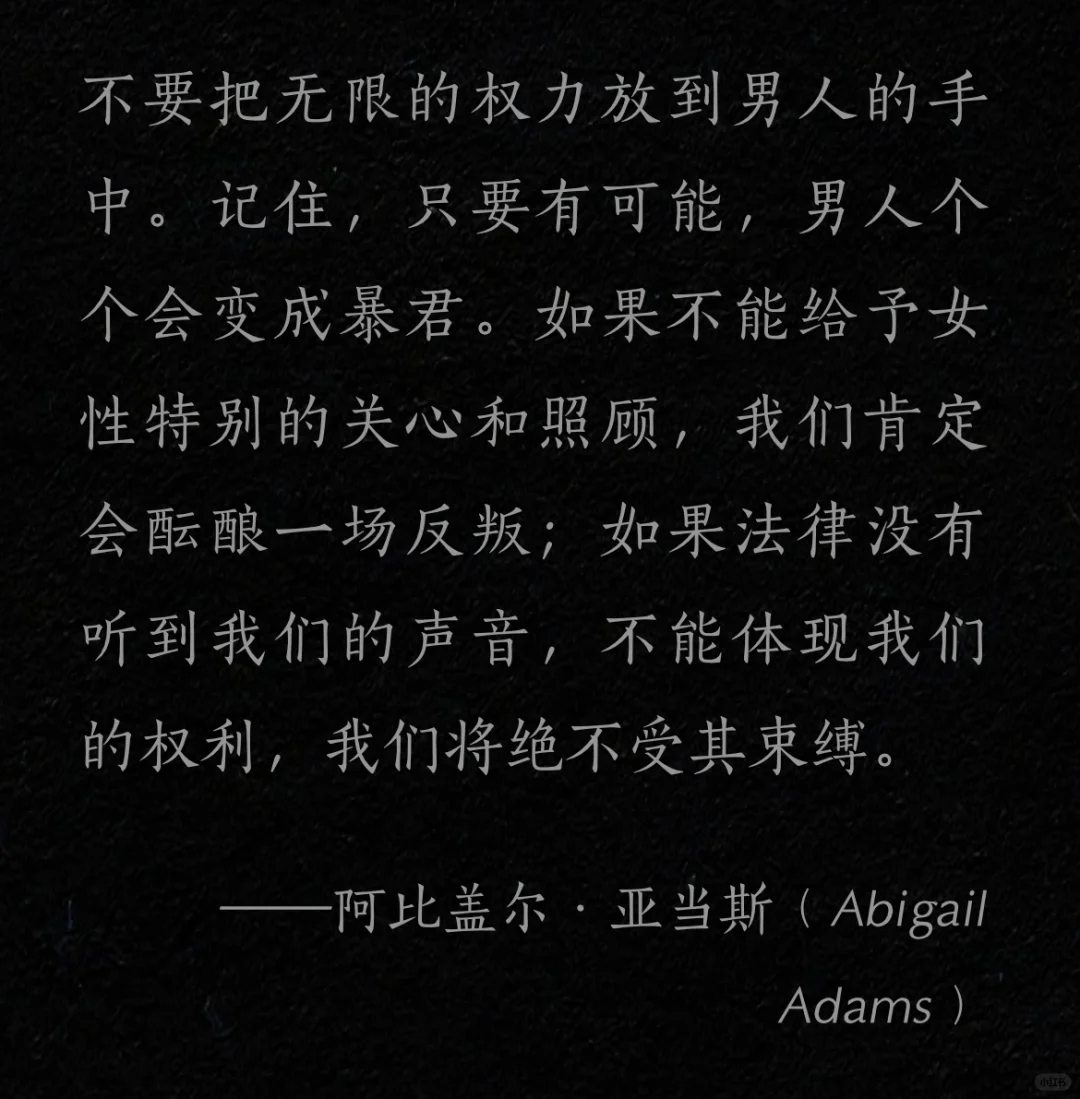 不要把无限的权力放到男人的手
中。记住，只要有可能，男人个
个会变成暴君。如果不能给予女
性特别的关心和照顾，我们肯定
会酝酿一场反叛；如果法律没有
听到我们的声音，不能体现我们
的权利，我们将绝不受其束缚。
——阿比盖尔·亚当斯（Abigail
Adams）
小红书